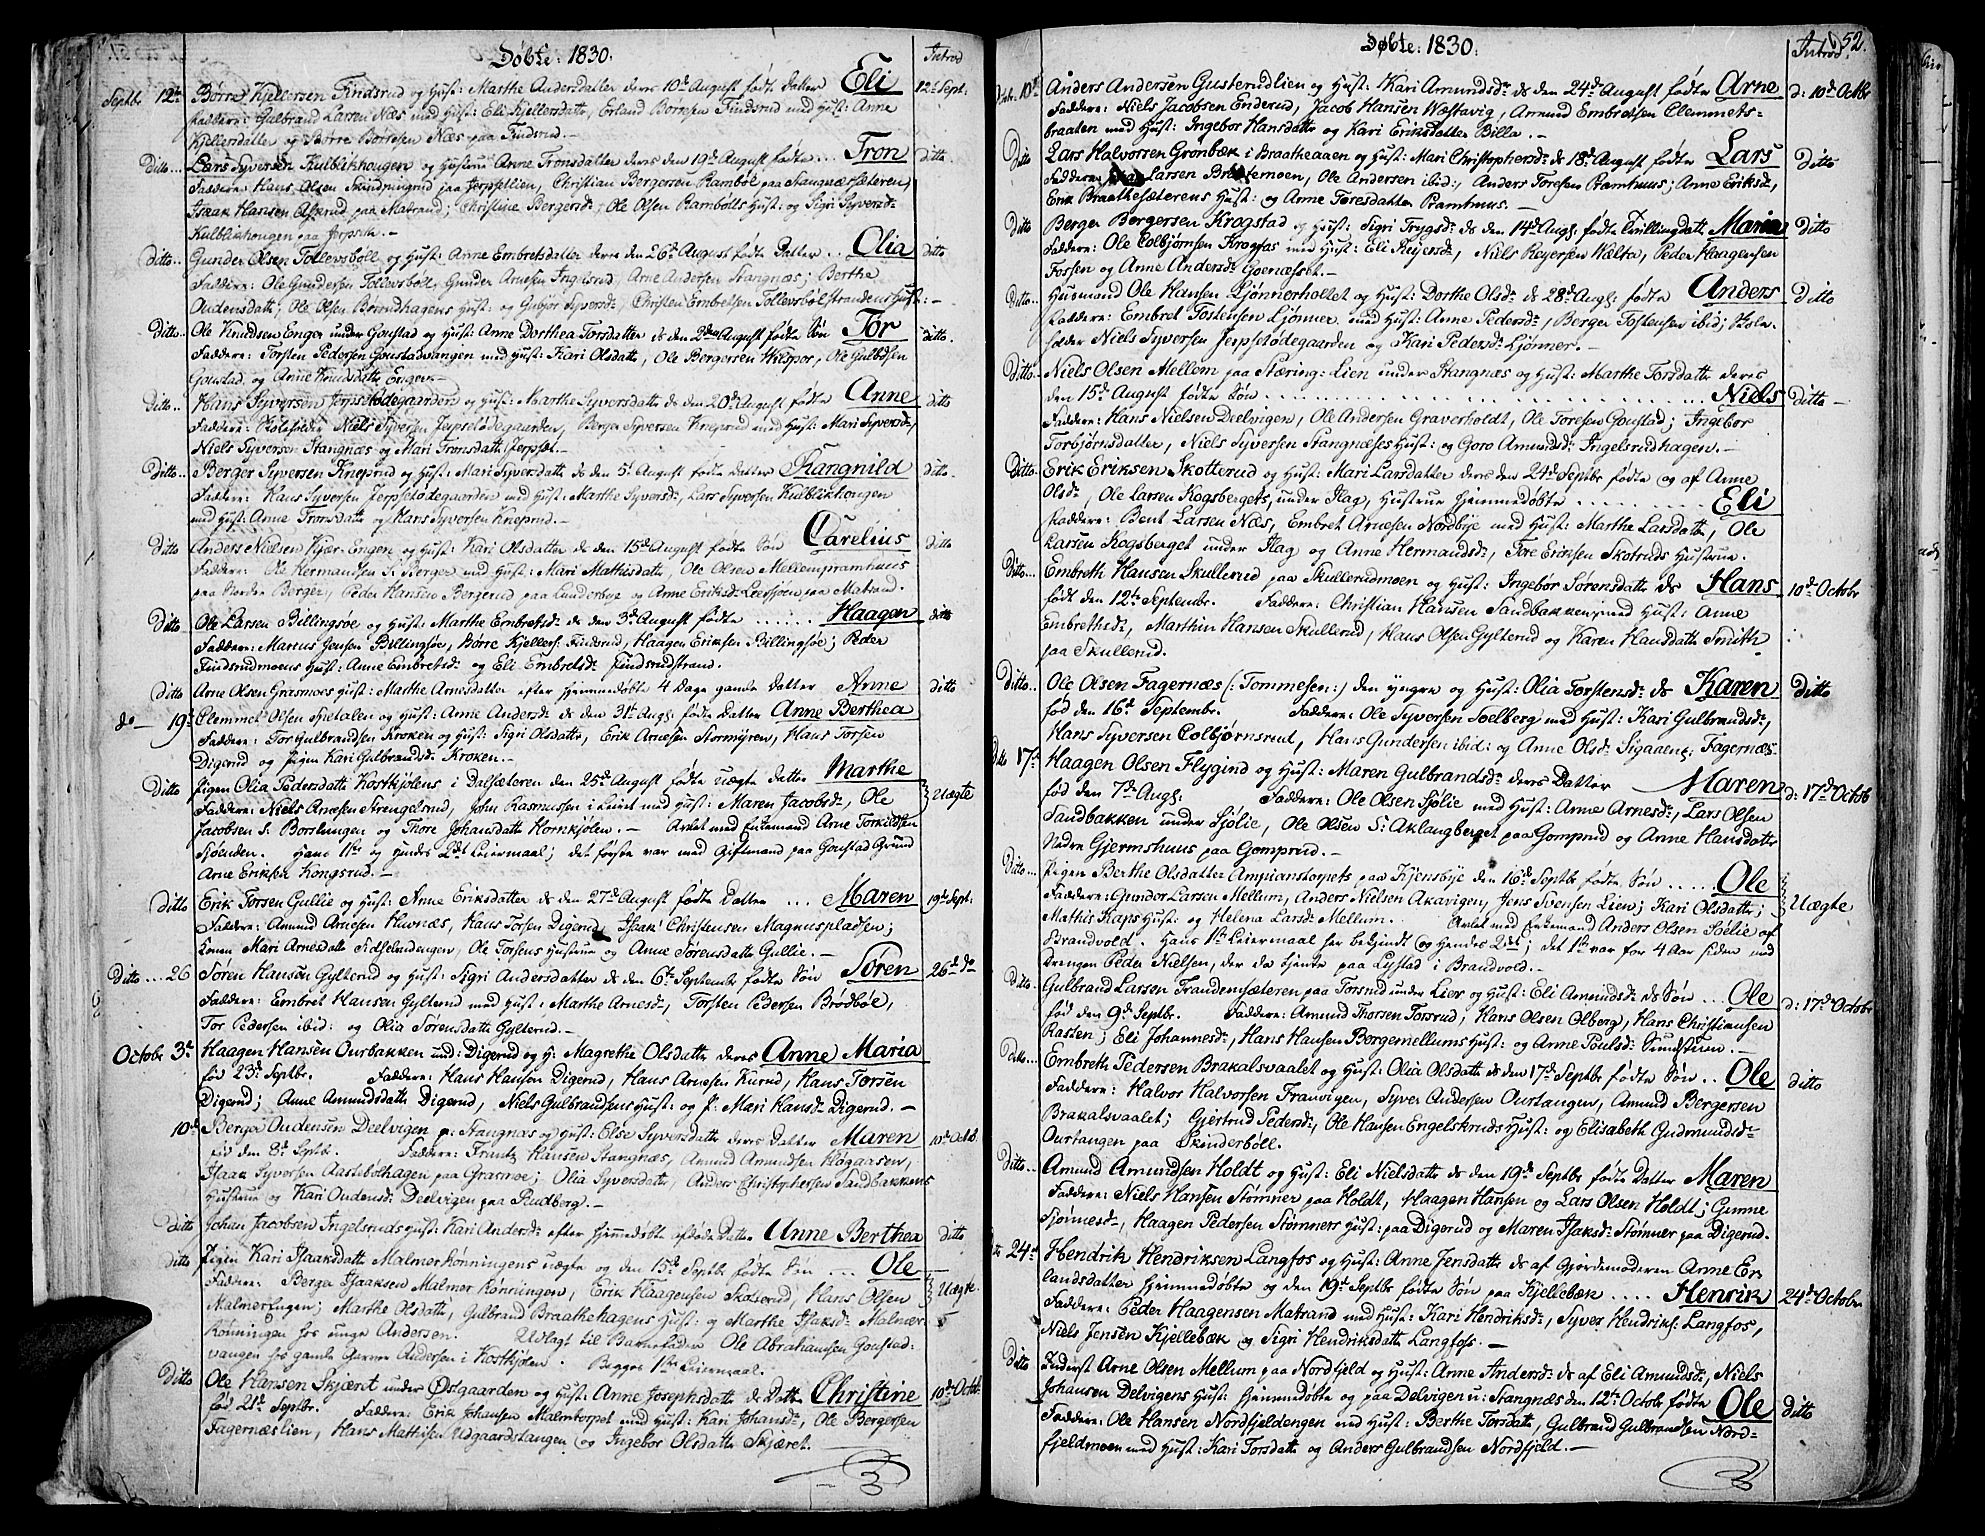 Døbte: 1830.
Introd
Septbr 12te Børre Kjellersen Findsrud og Hust: Marthe Andersdatter deres 10d August fødte Datter Eli 12te Sept:
Faddere: Gulbrand Larsen Næs med Hust: Eli Kjellersdatter, Erland Børresen Findsrud med Hust: Anne
Kjellersdatter og Børre Børresen Næs paa Findsrud.—
Ditto... Lars Syversen Kulblikhougen og Hustrue Anne Tronsdatter deres den 19d August fødte ... Tron ditto
Faddere: Hans Olsen Skindpungrud paa Jerpsetlien, Christian Bergersen Ramböl paa Stangnæssæteren,
Isaak Hansen Askrud paa Matrand; Christine Bergersd:, Ole Olsen Rambölls Hust: og Sigri Syversd:
Kulblikhougen paa Jerpset.—
Ditto.. Gunder Olsen Tollevsböll og Hust: Anne Embretsdatter deres den 26d August fødte Datter .. Olia ditto
Faddere: Ole Gundersen Tollevsböl, Gunder Arnesen Ingelsrud, Arne Andersen Stangnæs; Berthe
Audensdatt, Ole Olsen Börondhagens Hust: og Gubjör Syversd:, Christen Embretsen Tollevsbölstrandens Hust:—
Ditto.. Ole Knudsen Enger under Goustad og Hust: Anne Dorthea Torsdatter ds den 2den August fødte Søn Tor ditto.
Faddere: Torsten Pedersen Goustadvangen med Hust: Kari Olsdatt, Ole Bergersen Hilspor, Ole Gulbdsen
Goustad og Anne Knudsdatt Enger.—
Ditto.. Hans Syversen Jerpsetødegaarden og Hust: Marthe Syversdatt ds den 20d August fødte Anne ditto
Faddere: Skoleholder Niels Syversen Jerpsetødegaarden, Berger Syversen Kneprud med Hust: Mari Syversd:,
Niels Syversen Stangnæs og Mari Tronsdatt Jerpset.—
Ditto Berger Syversen Kneprud og Hust: Mari Syversdatt ds den 5t August fødte Datter Rangnild ditto.
Faddere: Hans Syversen Jerpsetødegaarden med Hust: Marthe Syversd:, Lars Syversen Kulblikhougen
med Hust: Anne Tronsdatt og Hans Syversen Kneprud.—
Ditto Anders Nielsen Kjær-Engen og Hust: Kari Olsdatter ds den 15d August fødte Søn Carelius ditto
Faddere: Ole Hermandsen S: Berger med Hust: Mari Mathisdatt, Ole Olsen Mellempramhuus
paa Nordre Berger, Peder Hansen Bergerud paa Lunderbye og Anne Eriksd: Leersjøen paa Matrand.
Ditto Ole Larsen Billingsøe og Hust: Marthe Embretsd: ds den 3d August fødte ...... Haagen ditto
Faddere: Marcus Jensen Billingsøe, Börre Kjellers: Findsrud, Haagen Eriksen Billingsøe; Peder
Findsrudmoens Hust: Anne Embretsd: og Eli Embretsd: Findsrudstrand.
Ditto Arne Olsen Grasmoes Hust: Marthe Arnesdatter efter hjemmedøbte 4 Dage gamle Datter Anne ditto
do — 19d Clemmet Olsen Spetalen og Hust: Anne Andersd: ds den 31te Aug: fødte Datter Anne Berthea
Faddere: Tor Gulbrandsen Kroken og Hust: Sigri Olsdatt, Erik Arnesen Stormyren, Hans Torsen
Digerud og Pigen Kari Gulbrandsd: Kroken.—
Ditto Pigen Olia Pedersdatt Kostkjölens i Dalsæteren den 25d August fødte uægte Datter Marthe Uægte
Faddere: Niels Arnesen Strengelsrud, John Rasmussen i Leiret med Hust: Maren Jacobsd:, Ole
Jacobsen S: Borslungen og Thore Johansdatt Hornkjølen.— Avlet med Enkemand Arne Torkildsen
Sjøenden. Hans 11te og hendes 2det Leiermaal; det første var med Giftmand paa Goustad Grund
Arne Eriksen Kongsrud.—
Ditto Erik Torsen Gullie og Hust: Anne Eriksdatter ds den 27d August fødte Datter ... Maren 19d Sept:
Faddere: Amund Arnesen Huvnæs, Hans Torsen Digerud, Isaak Christensen Magnuspladsen;
Konen Mari Arnesdatt Sidselendengen, Ole Torsens Hustrue og Anne Sørensdatt Gullie.—
Ditto ... 26 Søren Hansen Gylterud og Hust: Sigri Andersdatter ds den 6te Septembr fødte Søn Søren 26d do
Faddere: Embret Hansen Gylterud med Hust: Marthe Arnesd:, Torsten Pedersen Brødböl,
Tor Pedersen ibid: og Olia Sørensdatt Gylterud.—
Octobr 3d Haagen Hansen Ourbakken und: Digerud og H: Magrethe Olsdatt deres Anne Maria
fød 23d Septbr. Faddere: Hans Hansen Digerud, Hans Arnesen Kurud, Hans Torsen
Digerud; Anne Amundsdatt Digerud, Niels Gulbrandsens Hust: og P: Mari Hansd: Digerud.—
10d Berger Audensen Deelvigen p: Stangnæs og Hust: Else Syversdatt deres Datter Maren 10d Octob.
fød den 8d Septbr. Faddere: Frantz Hansen Stangnæs, Amund Amundsen Høgaasen,
Isaak Syversen Aastebölhagen paa Grasmoe; Olia Syversdatt, Anders Christophersen Sandbakkens
Hustrue og Kari Audensd: Deelvigen paa Rudberg.—
Ditto Johan Jacobsen Ingelsruds Hust: Kari Andersd: efter hjemmedøbt afdøde Datter Anne Berthea ditto
ditto Pigen Kari Isaaksdatt Malmerkønningens uægte og den 15d Septbr fødte Søn ... Ole Uægte.
Faddere: Berger Isaaksen Malmer Rønningen, Erik Haagensen Skaserud, Hans Olsen
MalmerEngen; Marthe Olsdatt, Gulbrand Braathehagens Hust: og Marthe Isaksd: Malmer
Rønningen hos unge Andersen. Udlagt til Barnefader Ole Abrahamsen Goustad-
vangen hos gamle Garver Andersen i Kostkjølen. Begges 1ste Leiermaal.
Ditto Ole Hansen Skjæret under Østgaarden og Hust: Anne Josephsdatt ds Datt Christine 10d Octob.
fød 21d Septbr. Faddere: Erik Johansen Malmtorpet med Hust: Kari Johansd:, Ole Bergersen
Fagernæslien, Hans Mathisen Udgaardstangen og Ingebor Olsdatt Skjæret.
Døbte: 1830.
Introd. 52.
Octobr. 10d Anders Andersen Gusterudlien og Hust: Kari Amundsd: ds den 24d August fødte Arne d: 10d Octbr
Faddere: Niels Jacobsen Enderud, Jacob Hansen Wæstavig, Amund Embretsen Clemmets-
braaten med Hust: Ingebor Hansdatt og Kari Eriksdatter Billa.—
Ditto Lars Halvorsen Grönbæk i Braatheaaen og Hust: Mari Christophersd: ds 18d August fødte Lars Ditto
Faddere: Larsen Braatemoen, Ole Andersen ibid:, Anders Toresen Pramhuus; Anne Eriksd:,
Erik Braathesæterens Hust: og Anne Toresdatter Pramhuus.—
Ditto Berger Bergersen Krogstad og Hust: Sigri Trygsd: ds den 14d Aug: fødte Tvillingdatt Maria Ditto
Faddere: Ole Colbjørnsen Krogfos med Hust: Eli Reijersd:, Niels Reyersen Wælta, Peder Haagensen
Fossen og Anne Andersd: Goenæsset.—
Ditto.. Husmand Ole Hansen Ljønnerholtet og Hust: Dorthe Olsd: ds 28d Aug: fødte Anders Ditto
Faddere: Embret Tostensen Ljönner med Hust: Anne Pedersd:, Berger Tostensen ibid; Skole-
holder Niels Syversen Jerpsetødegaarden og Kari Pedersd: Ljönner.—
Ditto.. Niels Olsen Mellom paa Stæring: Lien under Stangnæs og Hust: Marthe Torsdatt deres
den 15d August fødte Søn ..... Niels ditto —
Faddere: Hans Nielsen Deelvigen, Ole Andersen Graverholdt, Ole Toresen Goustad; Ingebor
Torbjørnsdatter, Niels Syversen Stangnæses Hust: og Goro Amundsd: Ingelsrudhagen.—
Ditto Erik Eriksen Skotterud og Hust: Mari Larsdatter deres den 24d Septbr fødte og af Anne
Olsd:, Ole Larsen Kogsbergets, under Flag, Hustrue hjemmedøbte ........ Eli
Faddere: Bent Larsen Næs, Embret Arnesen Nordbye med Hust: Marthe Larsdatt, Ole
Larsen Kogsberget under Flag og Anne Hermandsd:, Tore Eriksen Skotruds Hustrue.
Ditto.. Embreth Hansen Skullerud paa Skullerudmoen og Hust: Ingebor Sørensdatt ds Hans 10d Octobr
født den 12te Septembr. Faddere: Christian Hansen Sandbakken med Hust: Anne
Embrethsd:, Marthin Hansen Skullerud, Hans Olsen Gylterud og Karen Hansdatt Smith
paa Skullerud.
Ditto.. Ole Olsen Fagernæs (:Tommesen:) den yngre og Hust: Olia Torstensd: ds Karen Ditto
fød den 16d Septembr. Faddere: Ole Syversen Soelberg med Hust: Kari Gulbrandsd:,
Hans Syversen Colbjørnsrud, Hans Gundersen ibid: og Anne Olsd: Sigaaens; Fagernæs
Ditto 17d Haagen Olsen Flygind og Hust: Maren Gulbrandsd: deres Datter Maren d: 17d Octob
fød den 7d Aug: Faddere: Ole Olsen Sjölie med Hust: Anne Arnesd:, Lars Olsen
Sandbakken under Sjölie, Ole Olsen S: Aklangberget paa Gomprud og Anne Hansdatt
Nedre Gjermshuus paa Gomprud.—
Ditto... Pigen Berthe Olsdatter Ampianstorpets paa Kjensbye den 16d Septbr fødte Søn ..... Ole Uægte
Faddere: Gundor Larsen Mellum, Anders Nielsen Akavigen, Jens Svensen Lien; Kari Olsdatt,
Mathis Kaps Hust: og Helena Larsd: Mellum. Avlet med Enkemand Anders Olsen Sölie af
Brandvold. Hans 1ste Leiermaal her bekjendt og Hendes 2det; det 1ste var for 4 Aar siden med
Drengen Peder Nielsen, der da tjente paa Lystad i Brandvold.—
Ditto. Gulbrand Larsen Trandemsæteren paa Torsrud under Lier og Hust: Eli Amundsd: ds Søn .. Ole d: 17d Octobr
fød den 9d Septbr. Faddere: Amund Thorsen Torsrud, Hans Olsen Olberg, Hans Christiansen
Rasten; Eli Johannesd:, Hans Hansen Borgemellums Hust: og Anne Poulsd: Sundstuen.—
Ditto... Embreth Pedersen Brakalsvaalet og Hust: Olia Olsdatt ds den 17d Septbr fødte Søn .. Ole ditto
Faddere: Halvor Halvorsen Franvigen, Syver Andersen Ourtangen, Amund Bergersen
Brakalsvaalet; Gjertrud Pedersd:, Ole Hansen Engelskruds Hust: og Elisabeth Gudmundsd:
Ourtangen paa Skinderböll.
Ditto.. Amund Amundsen Holdt og Hust: Eli Nielsdatt ds den 19d Septbr fødte Datter Maren
Faddere: Niels Hansen Stömner paa Holdt, Haagen Hansen og Lars Olsen Holdt; Gunne
Sjönnesd:, Haagen Pedersen Stömners Hust: paa Digerud og Maren Isaksd: Stömner paa Digerud.
Ditto 24d Hendrik Hendriksen Langfos og Hust: Anne Jensdatt ds af Gjordemoderen Anne Er-
landsdatter hjemmedøbte og den 19d Septbr fødte Søn paa Kjellebæk .... Henrik 24d Octobr
Faddere: Peder Haagensen Matrand med Hust: Kari Hendriksd:, Syver Hendriks: Langfos,
Niels Jensen Kjellebæk og Sigri Hendriksdatt Langfos.—
Ditto Inderst Arne Olsen Mellum paa Nordfjeld og Hust: Anne Andersd: ds af Eli Amundsd:, Niels
Johansen Delvigens Hust: hjemmedøbte og paa Delvigen u: Stangnæs den 12te Octobr fødte Ole ditto
Faddere: Ole Hansen Nordfjeldengen med Hust: Berthe Torsdatt, Gulbrand Gulbrandsen Nord-
fjeldmoen med Hust: Kari Torsdatt og Anders Gulbrandsen Nordfjeld.—